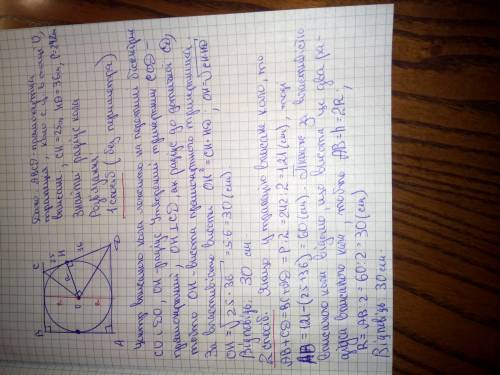 Дано: ABCD-прямокутна
трапеція, коло с ц. в точці O,
вписане. CH = 25см, HD = 36см, P = 242см
Знайти радіус кола
Розв'язання
1 спосіб (без периметра)
Центр вписаного кола лежить на перетині бісектрис
CO і DO, OH-радіус. Утворений трикутник COD -
прямокутний. OH⊥CD, як радіус до дотичної CD,
тобто OH висота прямокутного трикутника.
За властивістю висоти OH² = CH · HD, OH = √CH·HD
OH = √25·36 = 5·6 = 30 (см)
Відповідь: 30 см
2 спосіб. Якщо у трапецію вписане коло, то
AB + CD = BC + AD = P : 2 = 242 : 2 = 121 (см), тоді
AB = 121 - (25+36) = 60 (см). Також за властивістю
вписаного кола відомо що висота це два ра-
діуси вписаного кола тобто AB = h = 2R;
R = AB : 2 = 60 : 2 = 30 (см)
Відповідь 30 см.
B
C
25
H
36
O
A
D